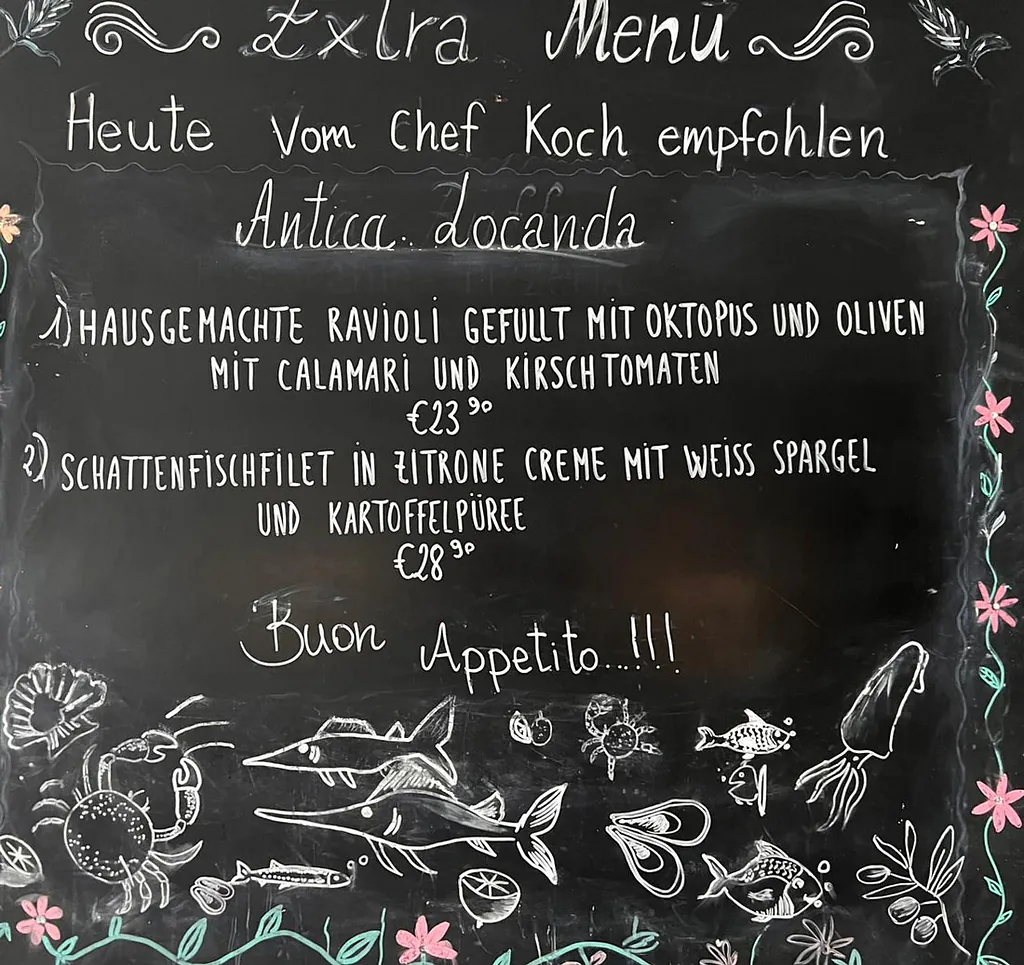 Extra Menü
Heute Vom Chef Koch empfohlen
Antica Locanda
1) HAUSGEMACHTE RAVIOLI GEFÜLLT MIT OKTOPUS UND OLIVEN
MIT CALAMARI UND KIRSCHTOMATEN
€23⁹⁰
2) SCHATTENFISCHFILET IN ZITRONE CREME MIT WEISS SPARGEL
UND KARTOFFELPÜREE
€28⁹⁰
Buon Appetito...!!!